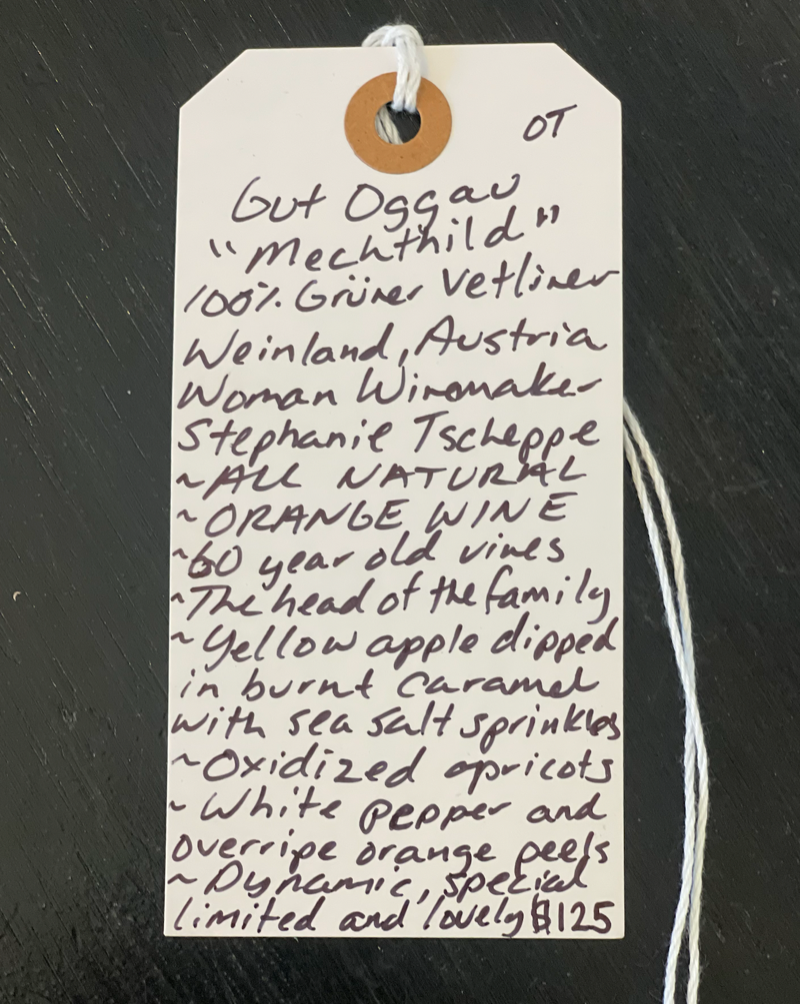 OT
Gut Oggau
"Mechthild"
100% Grüner Vetliner
Weinland, Austria
Woman Winemaker
Stephanie Tscheppe
~ALL NATURAL
~ORANGE WINE
~60 year old vines
~The head of the family
~Yellow apple dipped
in burnt caramel
with sea salt sprinkles
~Oxidized apricots
~White pepper and
overripe orange peels
~Dynamic, special
limited and lovely $125